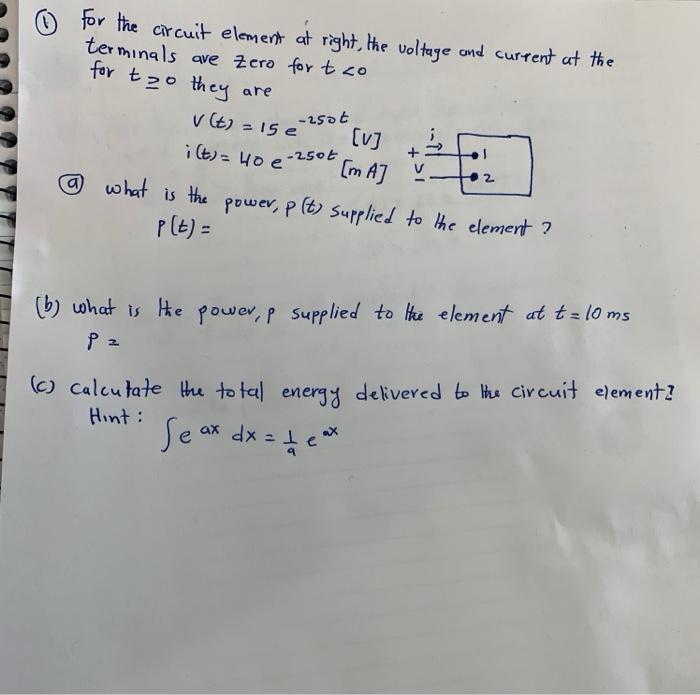 ① For the circuit element at right, the voltage and current at the
terminals are zero for t <0
for t ≥0 they are
v(t) = 15 e^-250t [V]
i(t) = 40 e^-250t [mA]
i
+ ⇒ 1
v
- 2
ⓐ what is the power, p(t) supplied to the element ?
P(t) =
(b) what is the power, p supplied to the element at t = 10 ms
P =
(c) calculate the total energy delivered to the circuit element?
Hint :
∫e^ax dx = 1/a e^ax